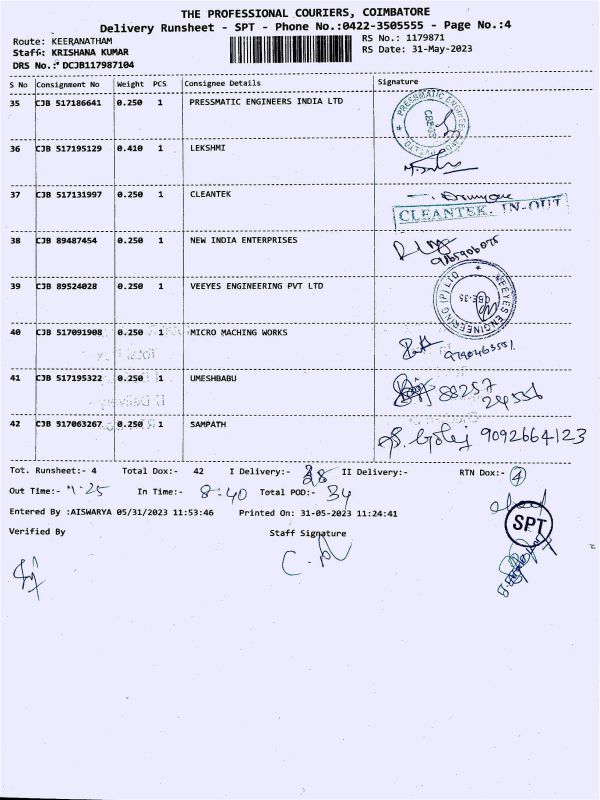 THE PROFESSIONAL COURIERS, COIMBATORE
Delivery Runsheet - SPT - Phone No.:0422-3505555 - Page No.:4
Route: KEERANATHAM RS No.: 1179871
Staff: KRISHANA KUMAR RS Date: 31-May-2023
DRS No.: DCJB117987104
S No Consignment No Weight PCS Consignee Details Signature
35 CJB 517186641 0.250 1 PRESSMATIC ENGINEERS INDIA LTD
36 CJB 517195129 0.410 1 LEKSHMI
37 CJB 517131997 0.250 1 CLEANTEK
CLEANTEK. IN-OUT
38 CJB 89487454 0.250 1 NEW INDIA ENTERPRISES
39 CJB 89524028 0.250 1 VEEYES ENGINEERING PVT LTD
VEEYES ENGINEERING (P) LTD CBE-35
40 CJB 517091908 0.250 1 MICRO MACHING WORKS
9790463551
41 CJB 517195322 0.250 1 UMESHBABU
88257
24556
42 CJB 517063267 0.250 1 SAMPATH 9092664123
Tot. Runsheet:- 4 Total Dox:- 42 I Delivery:- 38 II Delivery:- RTN Dox:- 4
Out Time:- 1-25 In Time:- 8-40 Total POD:- 34
Entered By :AISWARYA 05/31/2023 11:53:46 Printed On: 31-05-2023 11:24:41
SPT
Verified By Staff Signature